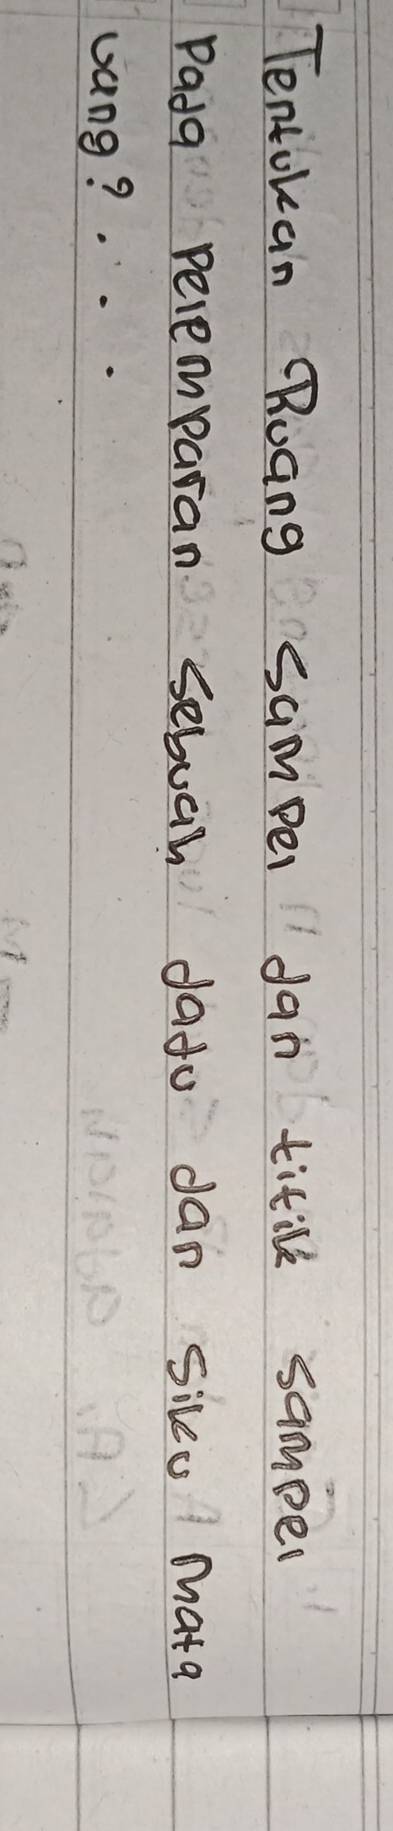 Tentukan Ruang sampel dan titik sampel
Pada pelemparan sebuah dadu dan siku mata
uang? . . .